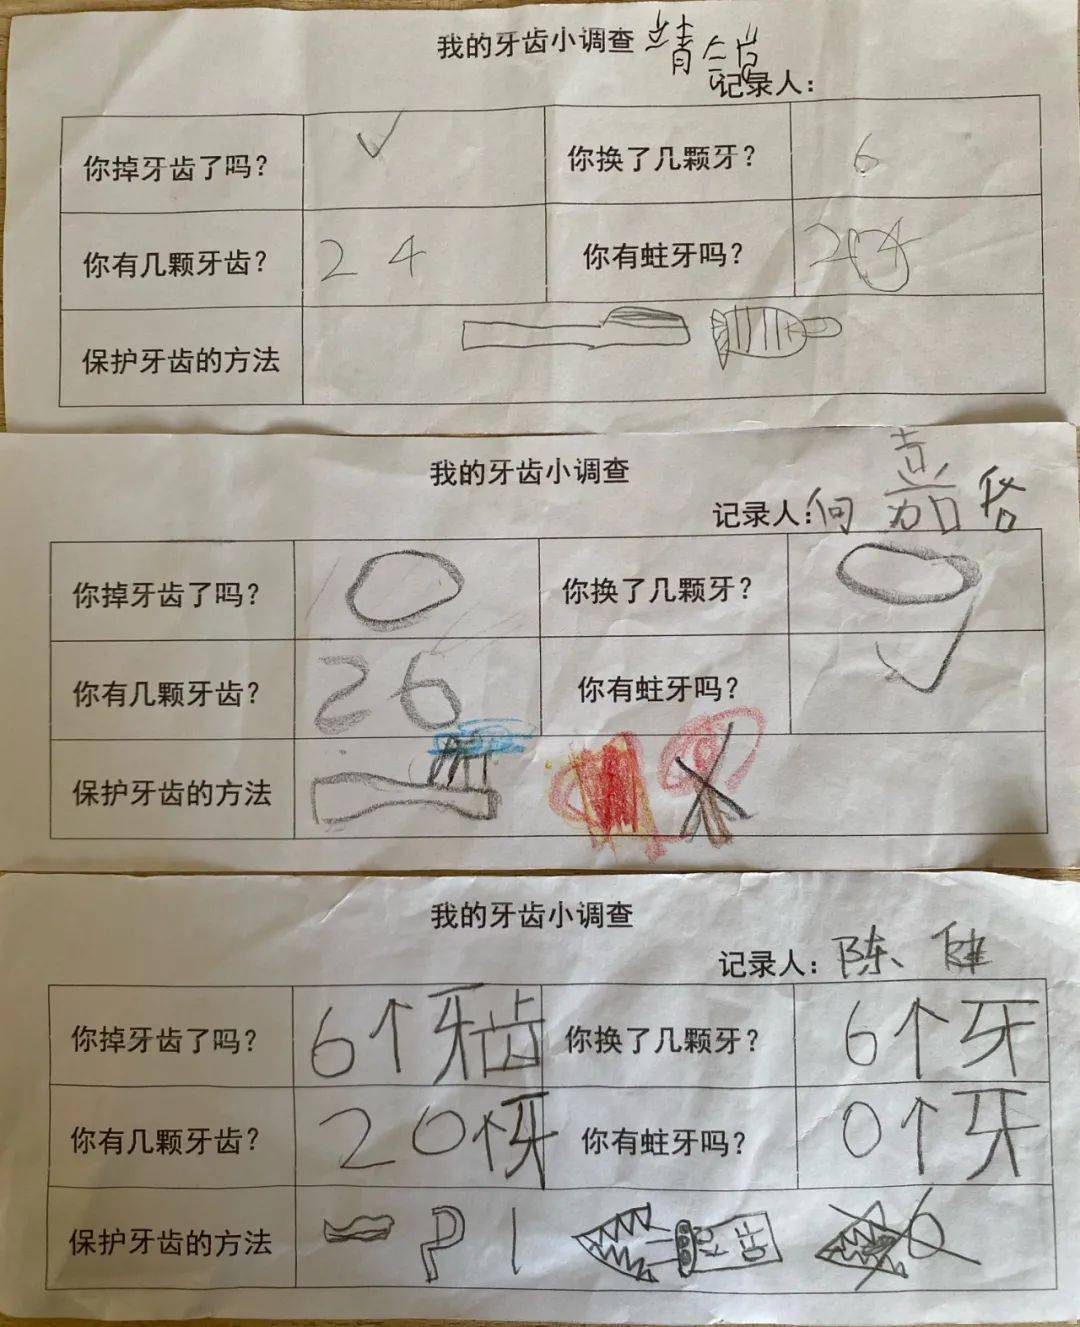 我的牙齿小调查
记录人：
你掉牙齿了吗？ ✓ 你换了几颗牙？ 6
你有几颗牙齿？ 24 你有蛀牙吗？
保护牙齿的方法
我的牙齿小调查
记录人：何嘉
你掉牙齿了吗？ 0 你换了几颗牙？ 0
你有几颗牙齿？ 26 你有蛀牙吗？ ✓
保护牙齿的方法
我的牙齿小调查
记录人：陈健
你掉牙齿了吗？ 6个牙齿 你换了几颗牙？ 6个牙
你有几颗牙齿？ 20个牙 你有蛀牙吗？ 0个牙
保护牙齿的方法